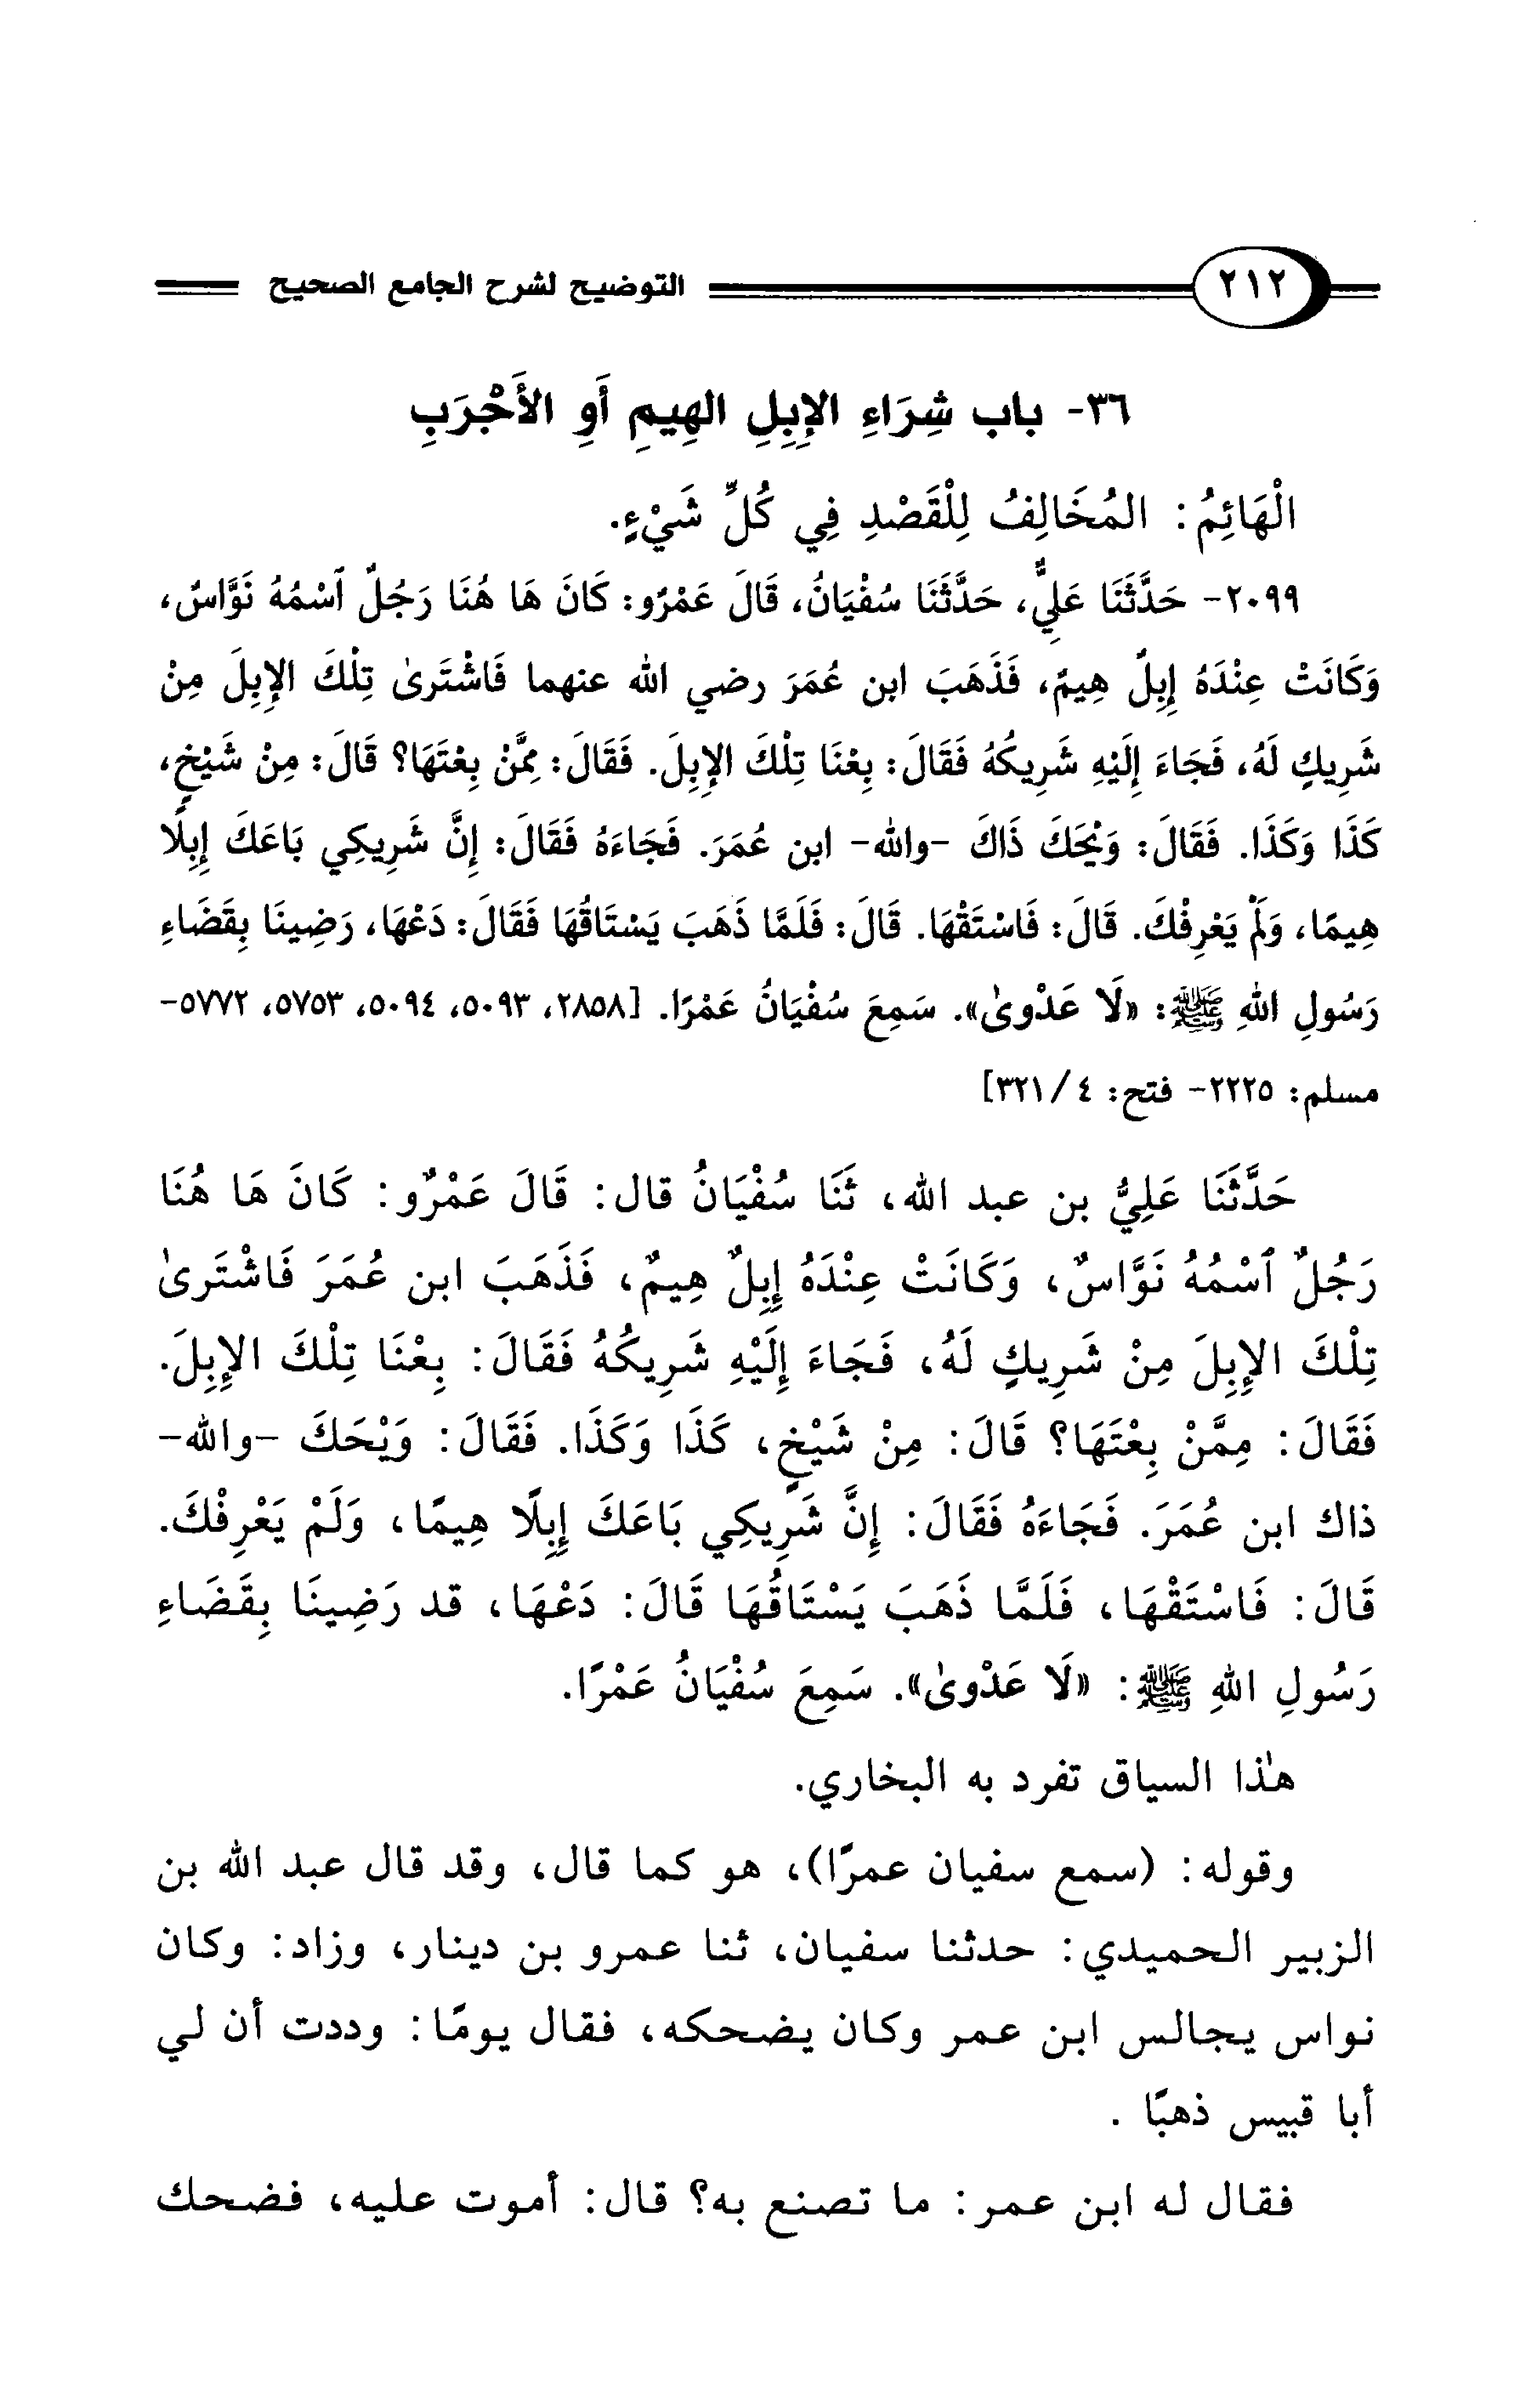 ٢١٢ التوضيح لشرح الجامع الصحيح
٣٦- باب شِرَاءِ الإِبِلِ الهِيمِ أَوِ الأَجْرَبِ
الْهَائِمُ: المُخَالِفُ لِلْقَصْدِ فِي كُلِّ شَيْءٍ.
٢٠٩٩- حَدَّثَنَا عَلِيٌّ، حَدَّثَنَا سُفْيَانُ، قَالَ عَمْرٌو: كَانَ هَا هُنَا رَجُلٌ ٱسْمُهُ نَوَّاسٌ،
وَكَانَتْ عِنْدَهُ إِبِلٌ هِيمٌ، فَذَهَبَ ابن عُمَرَ رضي الله عنهما فَاشْتَرىٰ تِلْكَ الإِبِلَ مِنْ
شَرِيكٍ لَهُ، فَجَاءَ إِلَيْهِ شَرِيكُهُ فَقَالَ: بِعْنَا تِلْكَ الإِبِلَ. فَقَالَ: مِمَّنْ بِعْتَهَا؟ قَالَ: مِنْ شَيْخٍ،
كَذَا وَكَذَا. فَقَالَ: وَيْحَكَ ذَاكَ -والله- ابن عُمَرَ. فَجَاءَهُ فَقَالَ: إِنَّ شَرِيكِي بَاعَكَ إِبِلًا
هِيمًا، وَلَمْ يَعْرِفْكَ. قَالَ: فَاسْتَقْهَا. قَالَ: فَلَمَّا ذَهَبَ يَسْتَاقُهَا فَقَالَ: دَعْهَا، رَضِينَا بِقَضَاءِ
رَسُولِ اللهِ ﷺ: «لَا عَدْوىٰ». سَمِعَ سُفْيَانُ عَمْرًا. [٢٨٥٨، ٥٠٩٣، ٥٠٩٤، ٥٧٥٣، ٥٧٧٢-
مسلم: ٢٢٢٥- فتح: ٤/ ٣٢١]
حَدَّثَنَا عَلِيُّ بن عبد الله، ثَنَا سُفْيَانُ قال: قَالَ عَمْرٌو: كَانَ هَا هُنَا
رَجُلٌ ٱسْمُهُ نَوَّاسٌ، وَكَانَتْ عِنْدَهُ إِبِلٌ هِيمٌ، فَذَهَبَ ابن عُمَرَ فَاشْتَرىٰ
تِلْكَ الإِبِلَ مِنْ شَرِيكٍ لَهُ، فَجَاءَ إِلَيْهِ شَرِيكُهُ فَقَالَ: بِعْنَا تِلْكَ الإِبِلَ.
فَقَالَ: مِمَّنْ بِعْتَهَا؟ قَالَ: مِنْ شَيْخٍ، كَذَا وَكَذَا. فَقَالَ: وَيْحَكَ -والله-
ذاك ابن عُمَرَ. فَجَاءَهُ فَقَالَ: إِنَّ شَرِيكِي بَاعَكَ إِبِلًا هِيمًا، وَلَمْ يَعْرِفْكَ.
قَالَ: فَاسْتَقْهَا، فَلَمَّا ذَهَبَ يَسْتَاقُهَا قَالَ: دَعْهَا، قد رَضِينَا بِقَضَاءِ
رَسُولِ اللهِ ﷺ: «لَا عَدْوىٰ». سَمِعَ سُفْيَانُ عَمْرًا.
هٰذا السياق تفرد به البخاري.
وقوله: (سمع سفيان عمرًا)، هو كما قال، وقد قال عبد الله بن
الزبير الحميدي: حدثنا سفيان، ثنا عمرو بن دينار، وزاد: وكان
نواس يجالس ابن عمر وكان يضحكه، فقال يومًا: وددت أن لي
أبا قبيس ذهبًا .
فقال له ابن عمر: ما تصنع به؟ قال: أموت عليه، فضحك